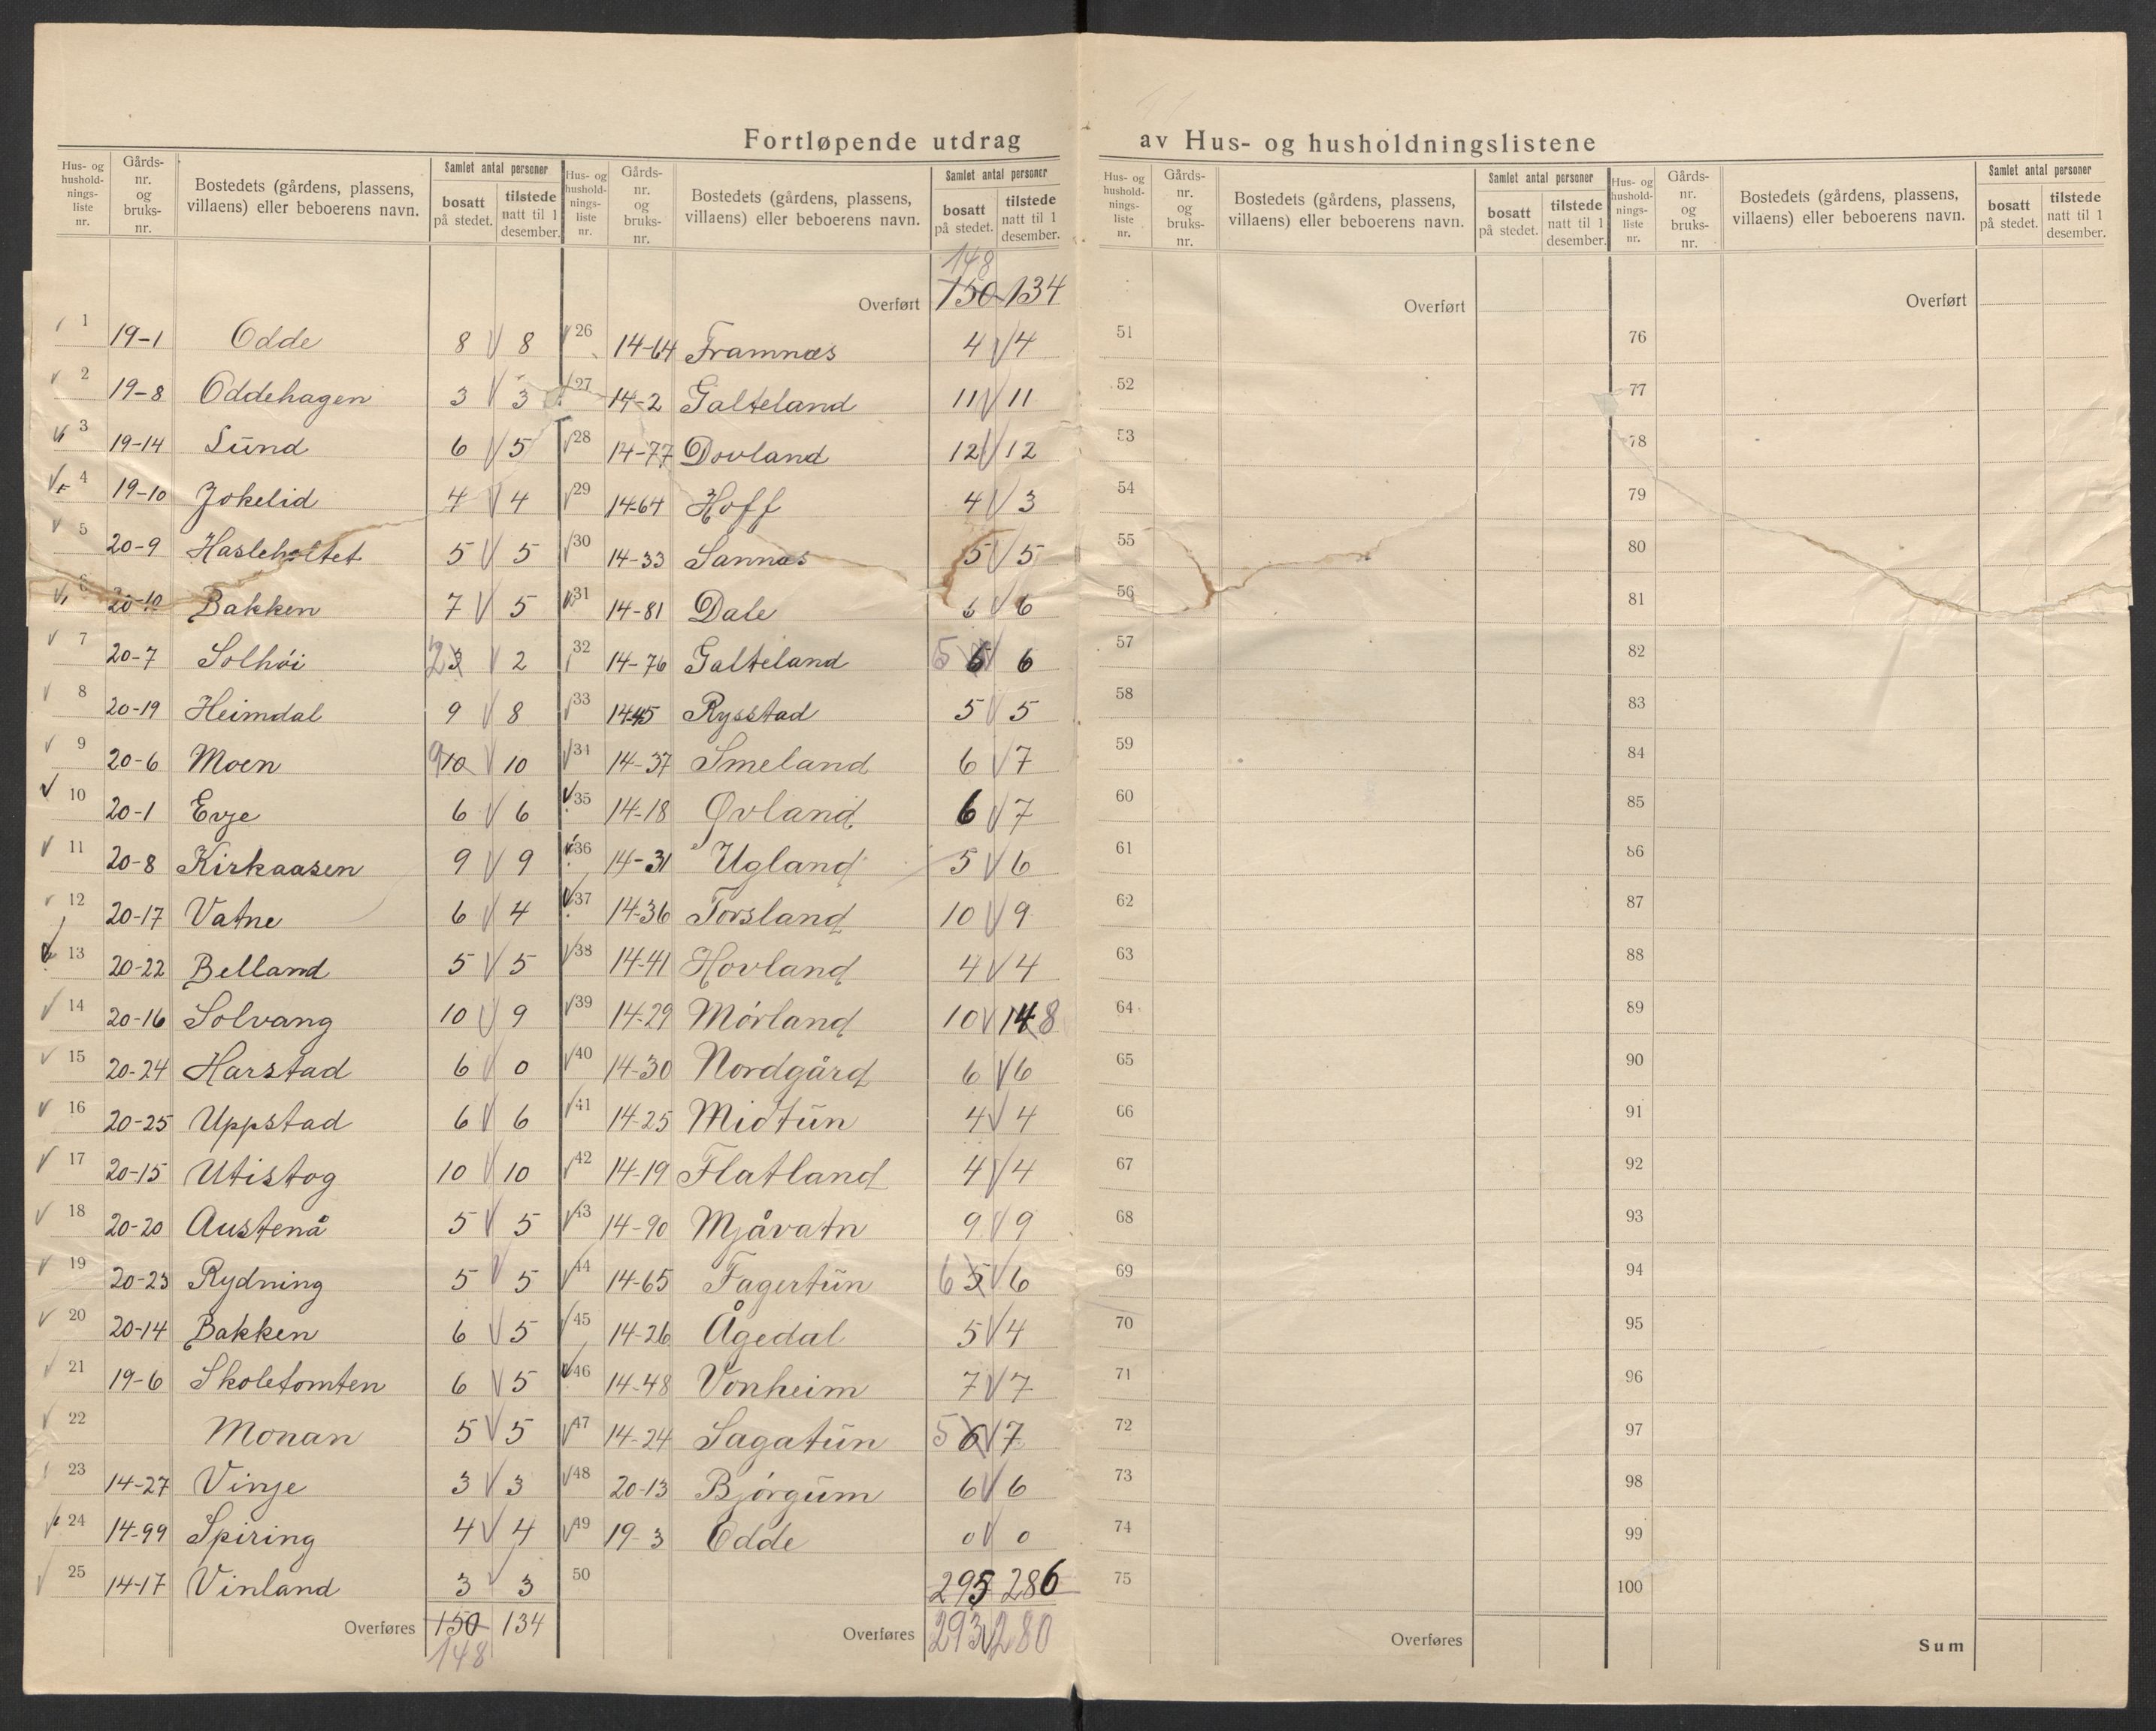 Fortløpende utdrag av Hus- og husholdningslistene
Hus- og husholdnings-liste nr. Gårds-nr. og bruks-nr. Bostedets (gårdens, plassens, villaens) eller beboerens navn. Samlet antal personer bosatt på stedet. tilstede natt til 1 desember.
1 19-1 Odde 8 8
2 19-8 Oddehagen 3 3
3 19-14 Lund 6 5
4 19-10 Jokelid 4 4
5 20-9 Hasleholtet 5 5
6 20-10 Bakken 7 5
7 20-7 Solhöi 2 3 2
8 20-19 Heimdal 9 8
9 20-6 Moen 9 10 10
10 20-1 Evje 6 6
11 20-8 Kirkaasen 9 9
12 20-17 Vatne 6 4
13 20-22 Belland 5 5
14 20-16 Solvang 10 9
15 20-24 Harstad 6 0
16 20-25 Uppstad 6 6
17 20-15 Utistog 10 10
18 20-20 Austenå 5 5
19 20-23 Rydning 5 5
20 20-14 Bakken 6 5
21 19-6 Skoletomten 6 5
22 Monan 5 5
23 14-27 Vinje 3 3
24 14-99 Spiring 4 4
25 14-17 Vinland 3 3
Overføres 150 134
148
Hus- og husholdnings-liste nr. Gårds-nr. og bruks-nr. Bostedets (gårdens, plassens, villaens) eller beboerens navn. Samlet antal personer bosatt på stedet. tilstede natt til 1 desember.
148
Overført 150 134
26 14-64 Framnæs 4 4
27 14-2 Galteland 11 11
28 14-77 Dovland 12 12
29 14-64 Hoff 4 3
30 14-33 Sannæs 5 5
31 14-81 Dale 6 6
32 14-76 Galteland 5 6 6
33 14-45 Rysstad 5 5
34 14-37 Smeland 6 7
35 14-18 Øvland 6 7
36 14-31 Ugland 5 6
37 14-36 Torsland 10 9
38 14-41 Hovland 4 4
39 14-29 Mörland 10 14 8
40 14-30 Nordgård 6 6
41 14-25 Midtun 4 4
42 14-19 Flatland 4 4
43 14-90 Mjåvatn 9 9
44 14-65 Fagertun 6 5 6
45 14-26 Ågedal 5 4
46 14-48 Vonheim 7 7
47 14-24 Sagatun 5 6 7
48 20-13 Bjørgum 6 6
49 19-3 Odde 0 0
50 295 286
Overføres 293 280
Hus- og husholdnings-liste nr. Gårds-nr. og bruks-nr. Bostedets (gårdens, plassens, villaens) eller beboerens navn. Samlet antal personer bosatt på stedet. tilstede natt til 1 desember.
Overført
51
52
53
54
55
56
57
58
59
60
61
62
63
64
65
66
67
68
69
70
71
72
73
74
75
Overføres
Hus- og husholdnings-liste nr. Gårds-nr. og bruks-nr. Bostedets (gårdens, plassens, villaens) eller beboerens navn. Samlet antal personer bosatt på stedet. tilstede natt til 1 desember.
Overført
76
77
78
79
80
81
82
83
84
85
86
87
88
89
90
91
92
93
94
95
96
97
98
99
100
Sum